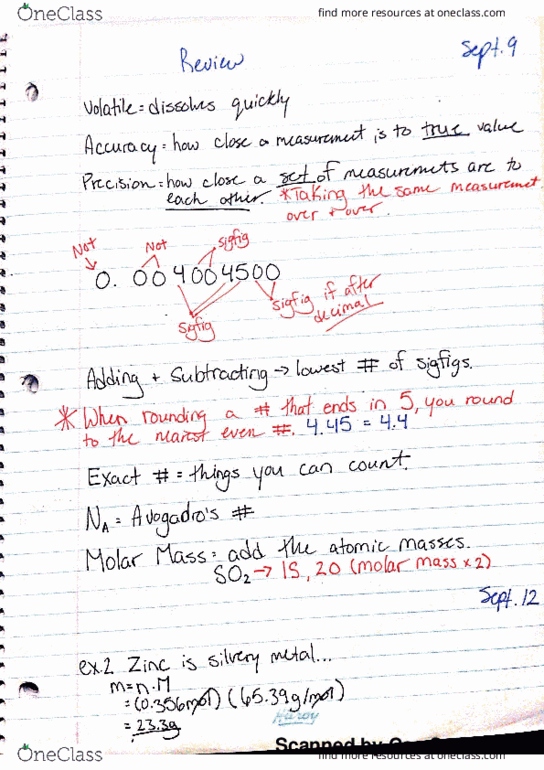 OneClass find more resources at oneclass.com
Sept. 9
Review
Volatile = dissolves quickly
Accuracy = how close a measurement is to true value
Precision = how close a set of measurements are to
each other. *Taking the same measurement
over + over.
Not Not sigfig
0. 004004500
sigfig sigfig if after
decimal
Adding + Subtracting → lowest # of sigfigs.
* When rounding a # that ends in 5, you round
to the nearest even #. 4.45 = 4.4
Exact # = things you can count.
NA = Avogadro's #
Molar Mass = add the atomic masses.
SO2 → 1S, 2O (molar mass x 2)
Sept. 12
ex.2 Zinc is silvery metal...
m = n·M
= (0.356mol) (65.39g/mol)
= 23.3g
Scanned by
OneClass find more resources at oneclass.com